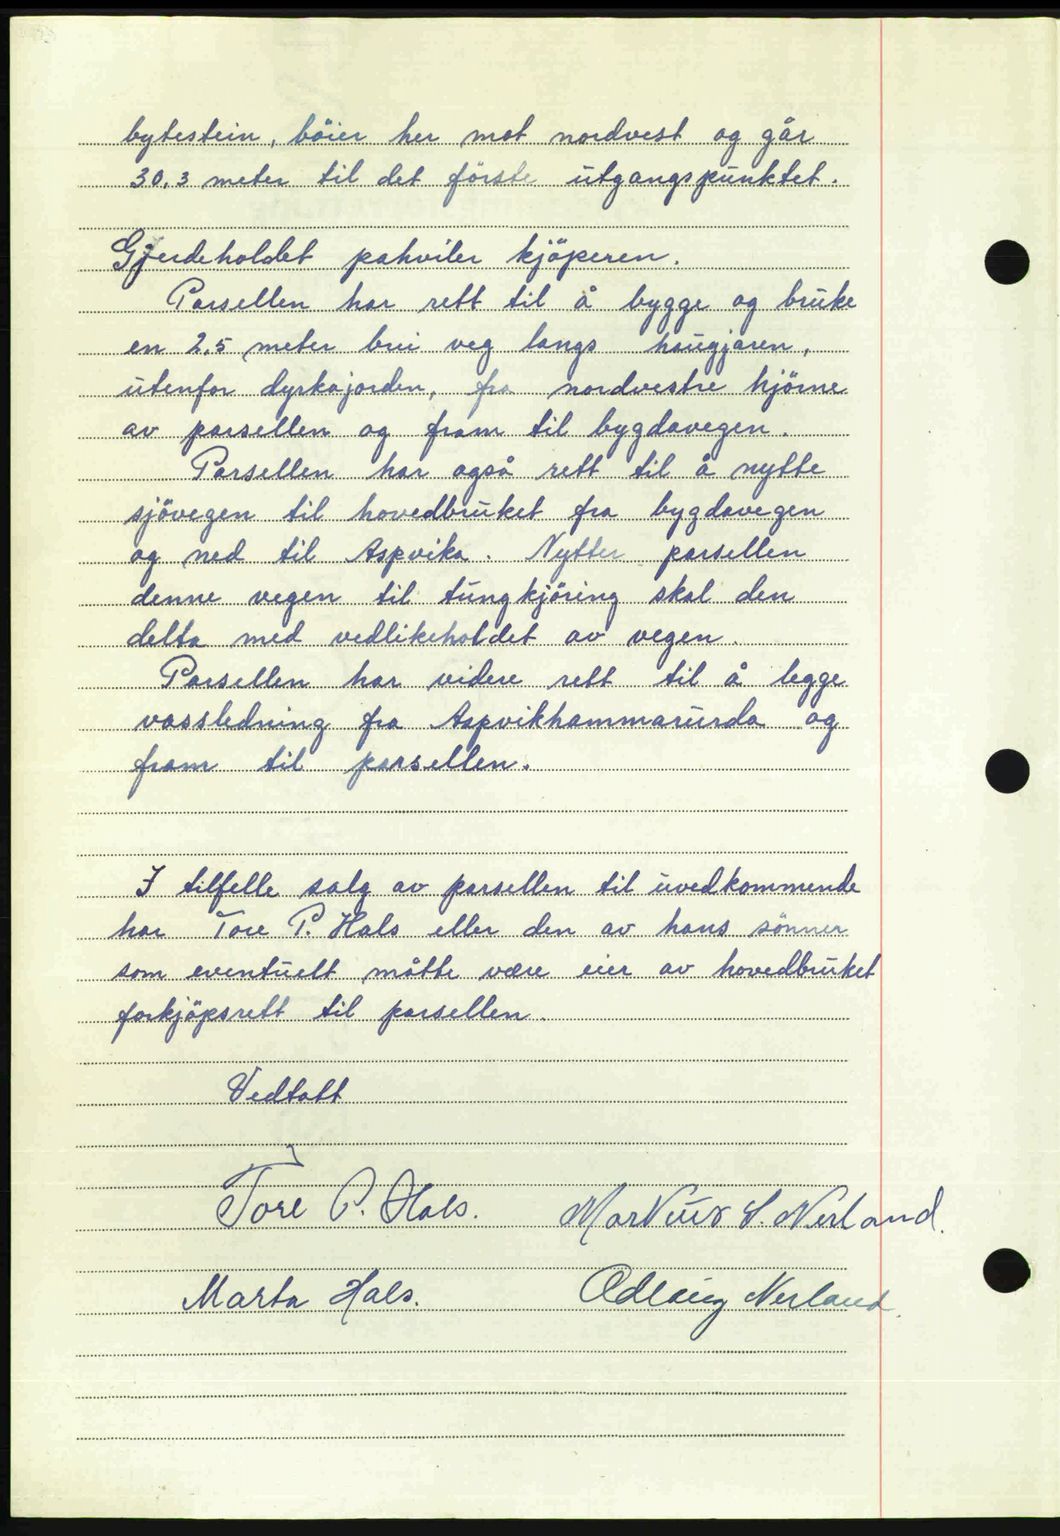 bytestein, böier her mot nordvest og går
30.3 meter til det förste utgangspunktet.
Gjerdeholdet pahviler kjöperen.
Parsellen har rett til å bygge og bruke
en 2.5 meter brei veg langs haugjaren,
utenfor dyrkajorden, fra nordvestre hjörne
av parsellen og fram til bygdavegen.
Parsellen har også rett til å nytte
sjövegen til hovedbruket fra bygdavegen
og ned til Aspvika. Nytter parsellen
denne vegen til tungkjöring skal den
delta med vedlikeholdet av vegen.
Parsellen har videre rett til å legge
vassledning fra Aspvikhammarurda og
fram til parsellen.
I tilfelle salg av parsellen til uvedkommende
har Tore P. Hals eller den av hans sönner
som eventuelt måtte være eier av hovedbruket
forkjöpsrett til parsellen.
Vedtatt
Tore P. Hals. Markus S. Nerland.
Marta Hals. Odlaug Nerland.